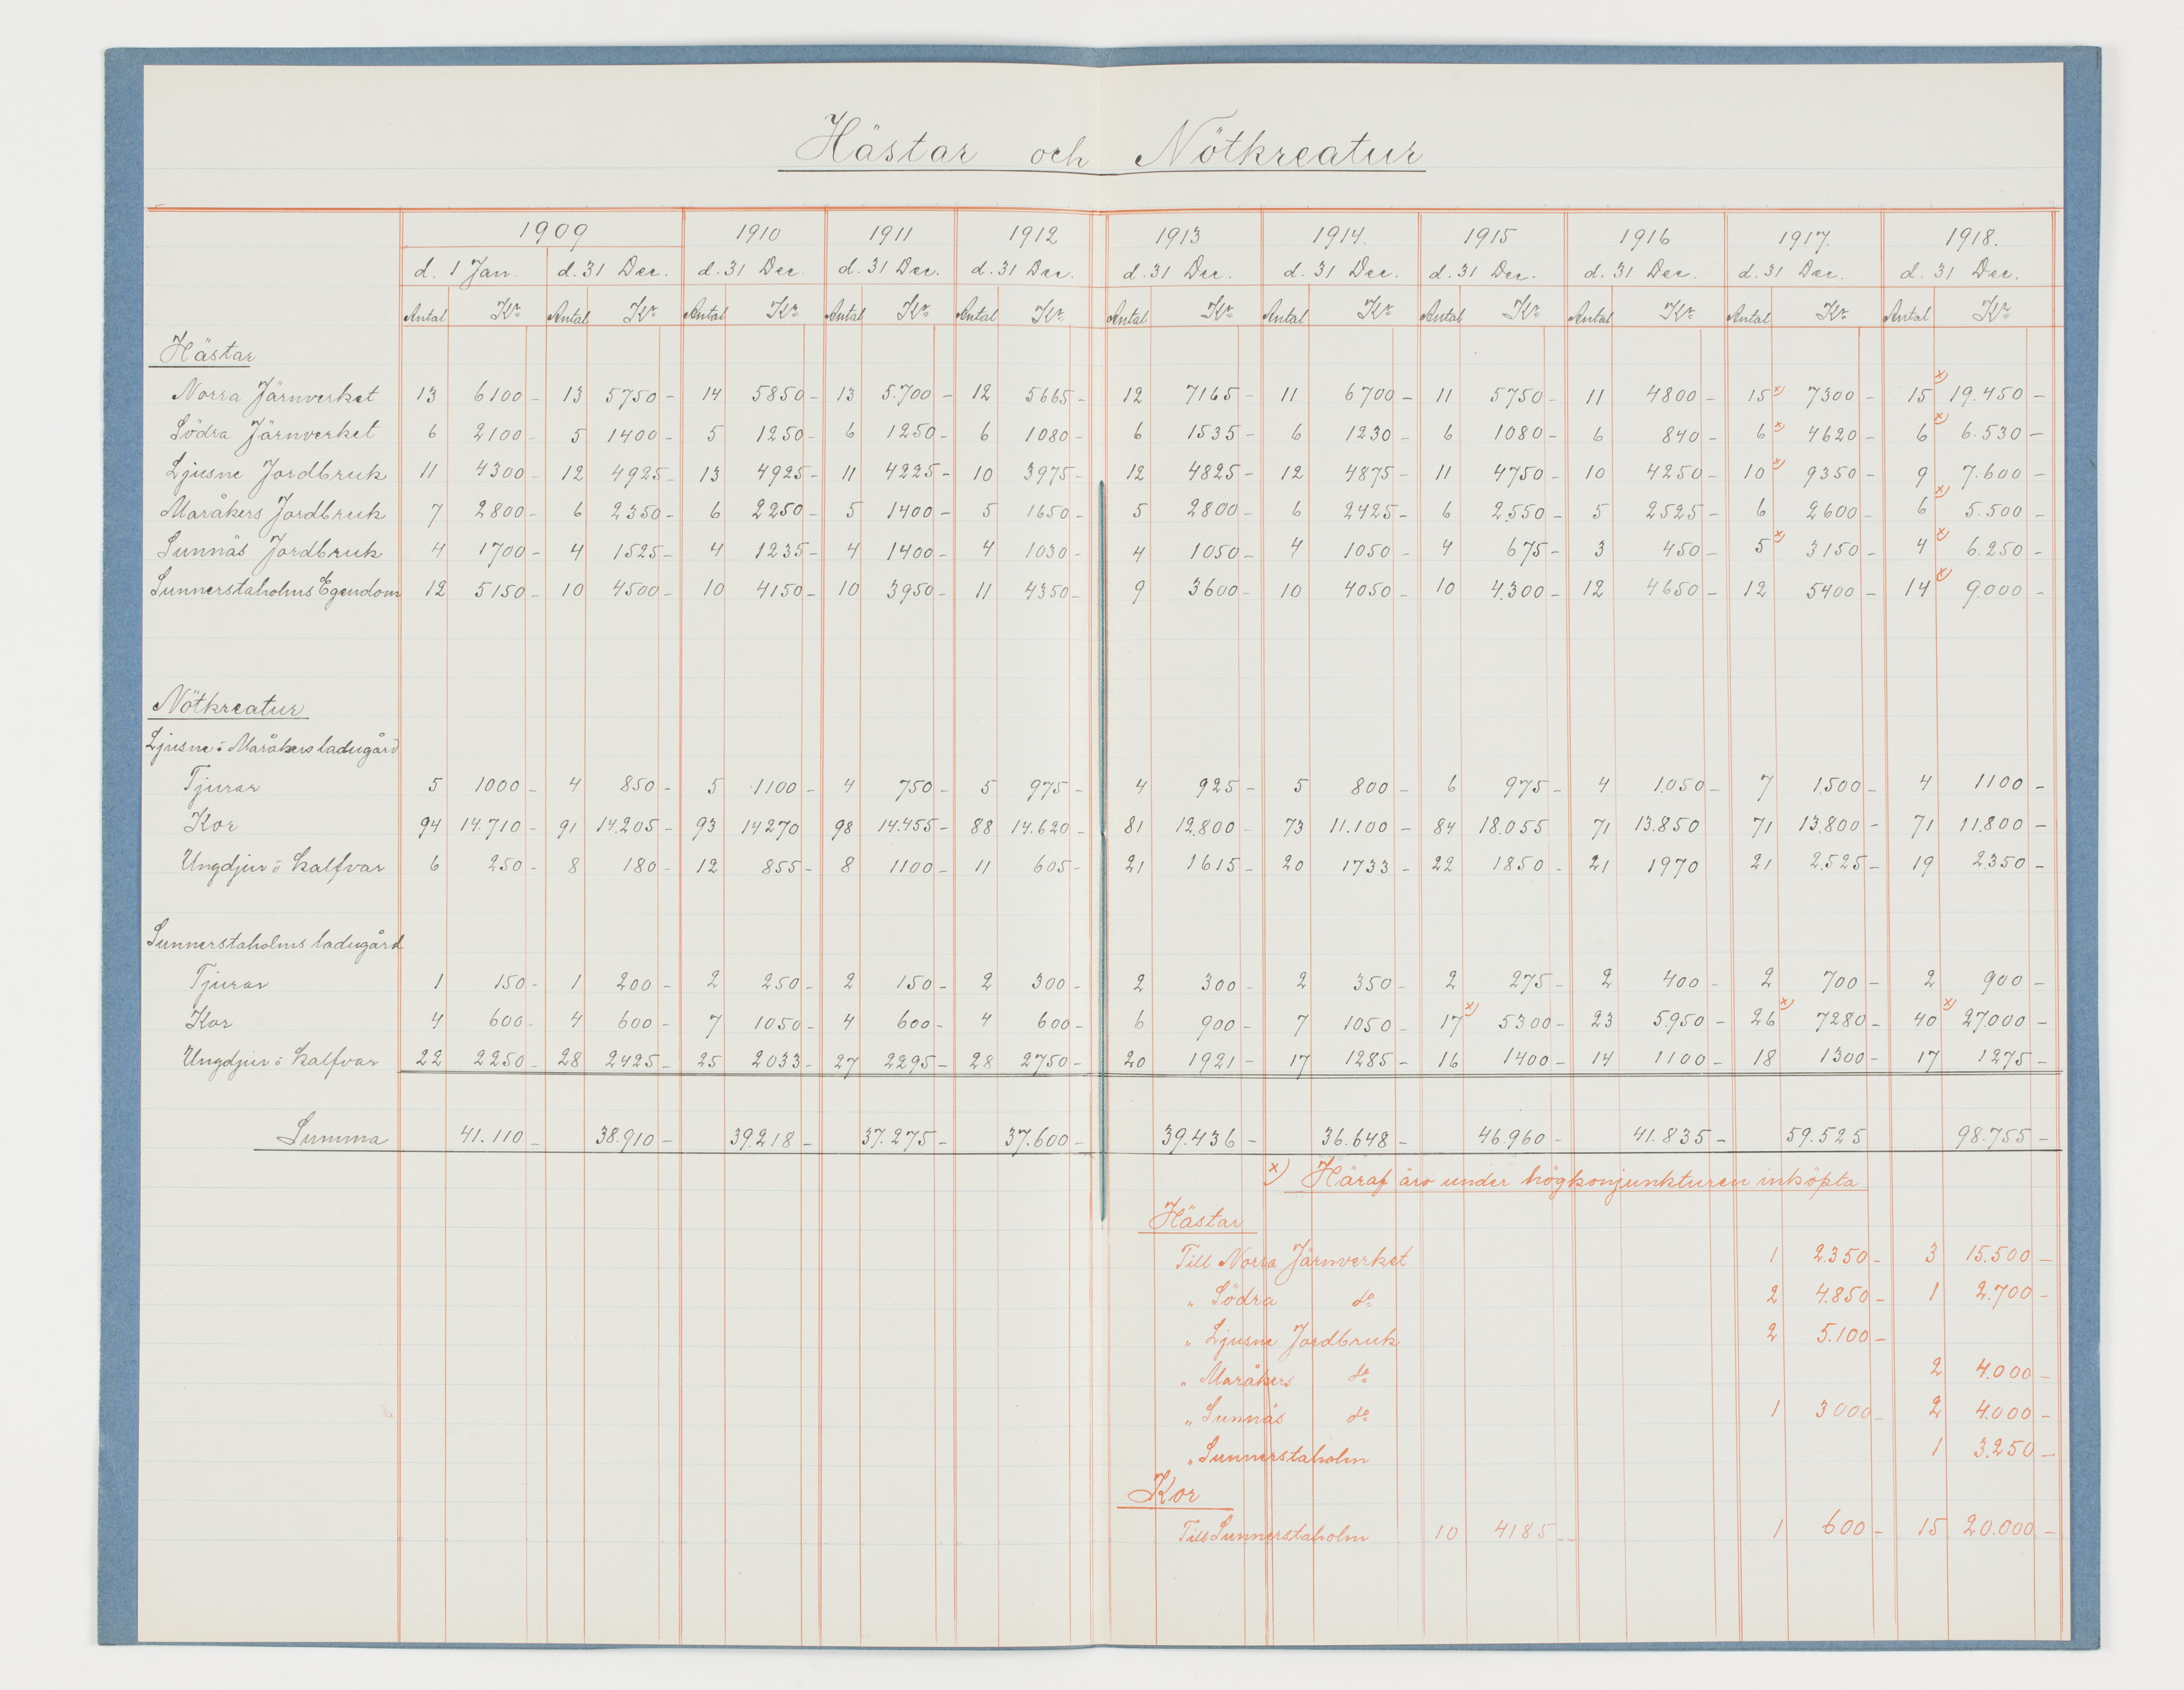 Hästar och Nötkreatur
1909 1910 1911 1912 1913 1914. 1915 1916 1917. 1918.
d. 1 Jan. d. 31 Dec. d. 31 Dec. d. 31 Dec. d. 31 Dec. d. 31 Dec. d. 31 Dec. d. 31 Dec. d. 31 Dec. d. 31 Dec. d. 31 Dec.
Antal Kr Antal Kr Antal Kr Antal Kr Antal Kr Antal Kr Antal Kr Antal Kr Antal Kr Antal Kr Antal Kr
Hästar
Norra Järnverket 13 6100 - 13 5750 - 14 5850 - 13 5.700 - 12 5665 - 12 7165 - 11 6700 - 11 5750 - 11 4800 - 15 x) 7300 - 15 x) 19.450 -
Södra Järnverket 6 2100 - 5 1400 - 5 1250 - 6 1250 - 6 1080 - 6 1535 - 6 1230 - 6 1080 - 6 840 - 6 x) 4620 - 6 x) 6.530 -
Ljusne Jordbruk 11 4300 - 12 4925 - 13 4925 - 11 4225 - 10 3975 - 12 4825 - 12 4875 - 11 4750 - 10 4250 - 10 x) 9350 - 9 7.600 -
Maråkers Jordbruk 7 2800 - 6 2350 - 6 2250 - 5 1400 - 5 1650 - 5 2800 - 6 2425 - 6 2.550 - 5 2525 - 6 2600 - 6 x) 5.500 -
Sunnäs Jordbruk 4 1700 - 4 1525 - 4 1235 - 4 1400 - 4 1030 - 4 1050 - 4 1050 - 4 675 - 3 450 - 5 x) 3150 - 4 x) 6.250 -
Sunnerstaholms Egendom 12 5150 - 10 4500 - 10 4150 - 10 3950 - 11 4350 - 9 3600 - 10 4050 - 10 4.300 - 12 4650 - 12 5400 - 14 x) 9.000 -
Nötkreatur
Ljusne o Maråkers ladugård
Tjurar 5 1000 - 4 850 - 5 1100 - 4 750 - 5 975 - 4 925 - 5 800 - 6 975 - 4 1.050 - 7 1.500 - 4 1100 -
Kor 94 14.710 - 91 14.205 - 93 14270 98 14.455 - 88 14.620 - 81 12.800 - 73 11.100 - 84 18.055 71 13.850 71 13.800 - 71 11.800 -
Ungdjur o Kalfvar 6 250 - 8 180 - 12 855 - 8 1100 - 11 605 - 21 1615 - 20 1733 - 22 1850 - 21 1970 21 2.525 - 19 2.350 -
Sunnerstaholms ladugård
Tjurar 1 150 - 1 200 - 2 250 - 2 150 - 2 300 - 2 300 - 2 350 - 2 275 - 2 400 - 2 700 - 2 900 -
Kor 4 600 - 4 600 - 7 1050 - 4 600 - 4 600 - 6 900 - 7 1050 - 17 x) 5300 - 23 5.950 - 26 x) 7280 - 40 x) 27.000 -
Ungdjur o Kalfvar 22 2250 - 28 2425 - 25 2033 - 27 2295 - 28 2750 - 20 1921 - 17 1285 - 16 1400 - 14 1100 - 18 1300 - 17 1275 -
Summa 41.110 - 38.910 - 39.218 - 37.275 - 37.600 - 39.436 - 36.648 - 46.960 - 41.835 - 59.525 98.755 -
x) Häraf äro under högkonjunkturen inköpta
Hästar
Till Norra Järnverket 1 2.350 - 3 15.500 -
" Södra do 2 4.850 - 1 2.700 -
" Ljusne Jordbruk 2 5.100 -
" Maråkers do 2 4.000 -
" Sunnäs do 1 3000 - 2 4.000 -
" Sunnerstaholm 1 3.250 -
Kor
Till Sunnerstaholm 10 4185 - 1 600 - 15 20.000 -